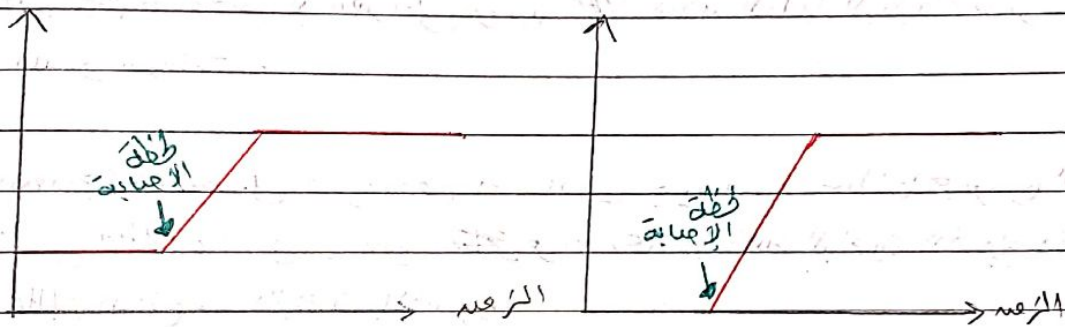 لحظة
الإصابة
الزمن
لحظة
الإصابة
الزمن